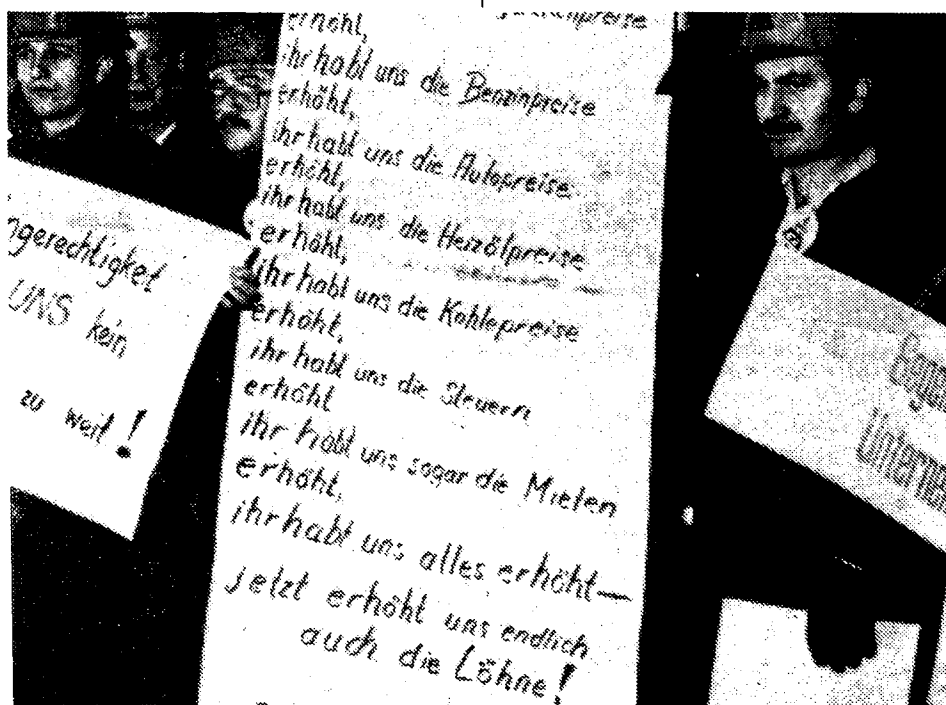 erhöht,
ihr habt uns die Benzinpreise
erhöht,
ihr habt uns die Autopreise
erhöht,
ihr habt uns die Heizölpreise
erhöht,
ihr habt uns die Kohlepreise
erhöht,
ihr habt uns die Steuern
erhöht
ihr habt uns sogar die Mieten
erhöht,
ihr habt uns alles erhöht—
jetzt erhöht uns endlich
auch die Löhne!
ngerechtigket
UNS kein
zu weit!